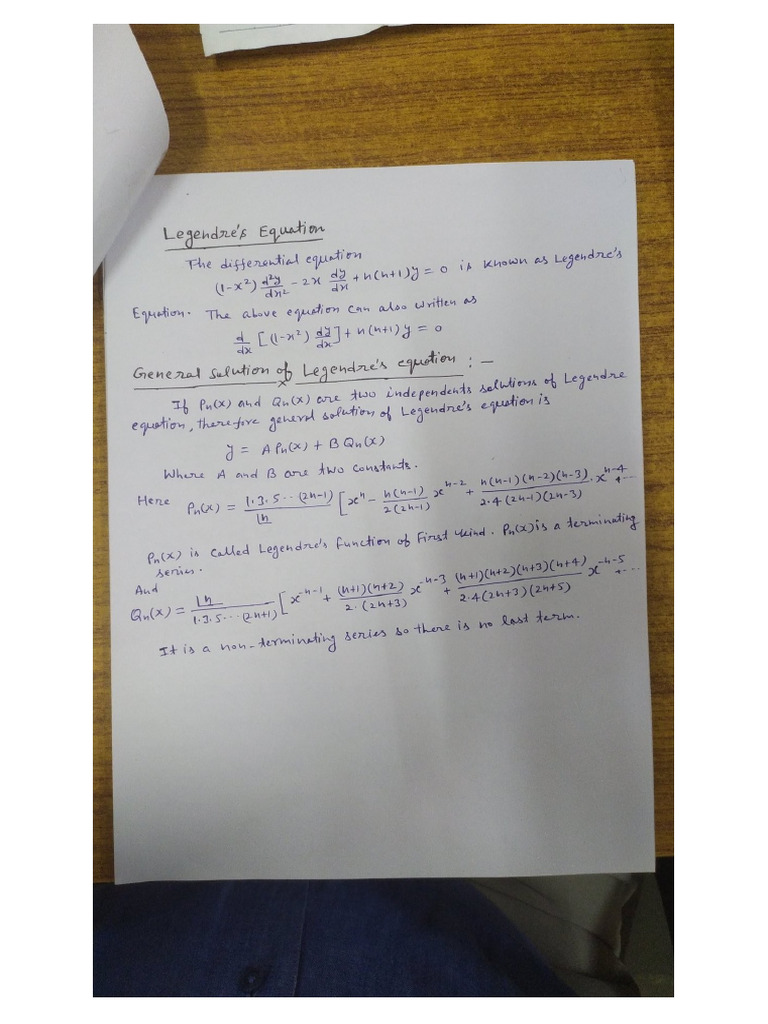 Legendre's Equation
The differential equation
(1-x²) d²y/dx² - 2x dy/dx + n(n+1)y = 0 is known as Legendre's
Equation. The above equation can also written as
d/dx [(1-x²) dy/dx] + n(n+1) y = 0
General solution of Legendre's equation : -
If Pn(x) and Qn(x) are two independents solutions of Legendre
equation, therefore general solution of Legendre's equation is
y = A Pn(x) + B Qn(x)
Where A and B are two constants.
Here Pn(x) = 1.3.5...(2n-1)/|n [x^n - n(n-1)/2(2n-1) x^n-2 + n(n-1)(n-2)(n-3)/2.4(2n-1)(2n-3) . x^n-4 + ...
Pn(x) is called Legendre's function of First kind. Pn(x) is a terminating
series.
And
Qn(x) = |n/1.3.5...(2n+1) [x^-n-1 + (n+1)(n+2)/2.(2n+3) x^-n-3 + (n+1)(n+2)(n+3)(n+4)/2.4(2n+3)(2n+5) x^-n-5 + ...
It is a non-terminating series so there is no last term.